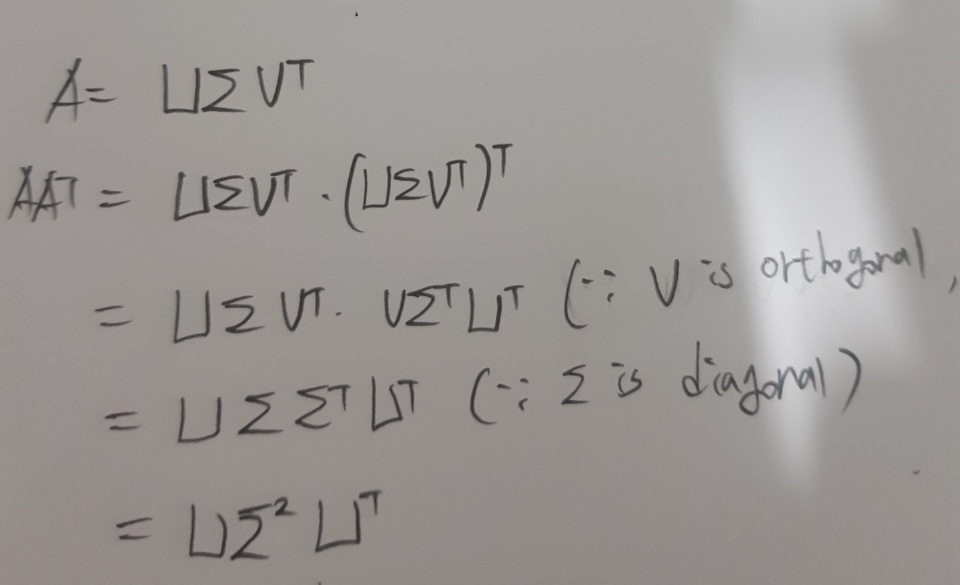 A = UΣVᵀ
AAᵀ = UΣVᵀ · (UΣVᵀ)ᵀ
= UΣVᵀ · VΣᵀUᵀ (∵ V is orthogonal,
= UΣΣᵀUᵀ (∵ Σ is diagonal)
= UΣ²Uᵀ